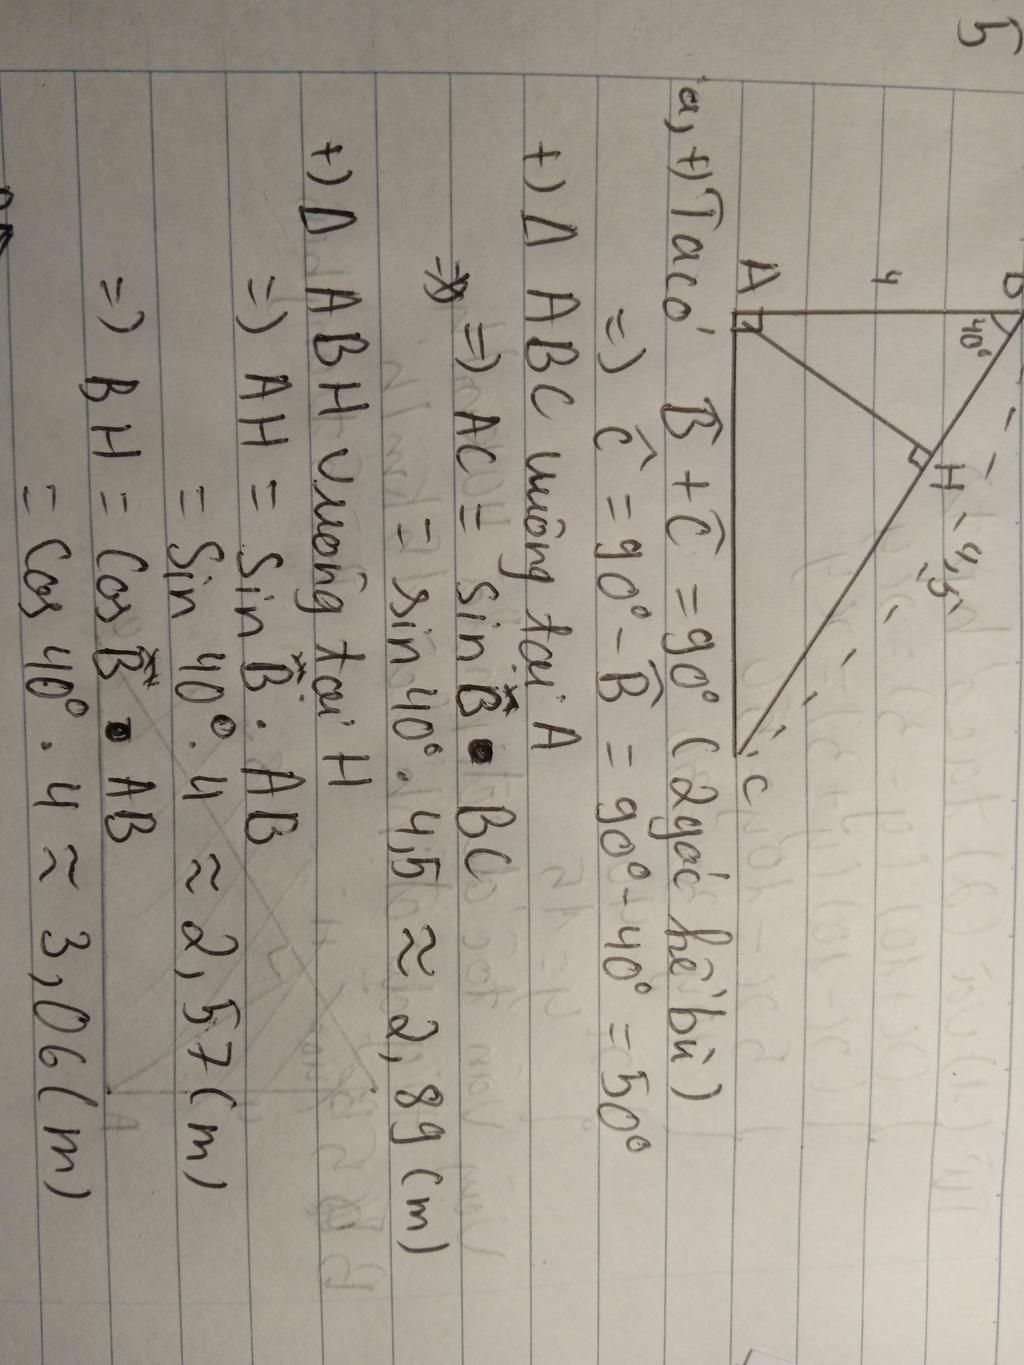 5
B
40°
4
H
4,5
A
C
a, +) Ta có B̂ + Ĉ = 90° (2 góc hệ bù)
=) Ĉ = 90° - B̂ = 90° - 40° = 50°
+) Δ ABC vuông tại A
=) AC = sin B̂ . BC
= sin 40° . 4,5 ≈ 2,89 (m)
+) Δ ABH vuông tại H
=) AH = Sin B̂ . AB
= Sin 40° . 4 ≈ 2,57 (m)
=) BH = Cos B̂ . AB
= Cos 40° . 4 ≈ 3,06 (m)